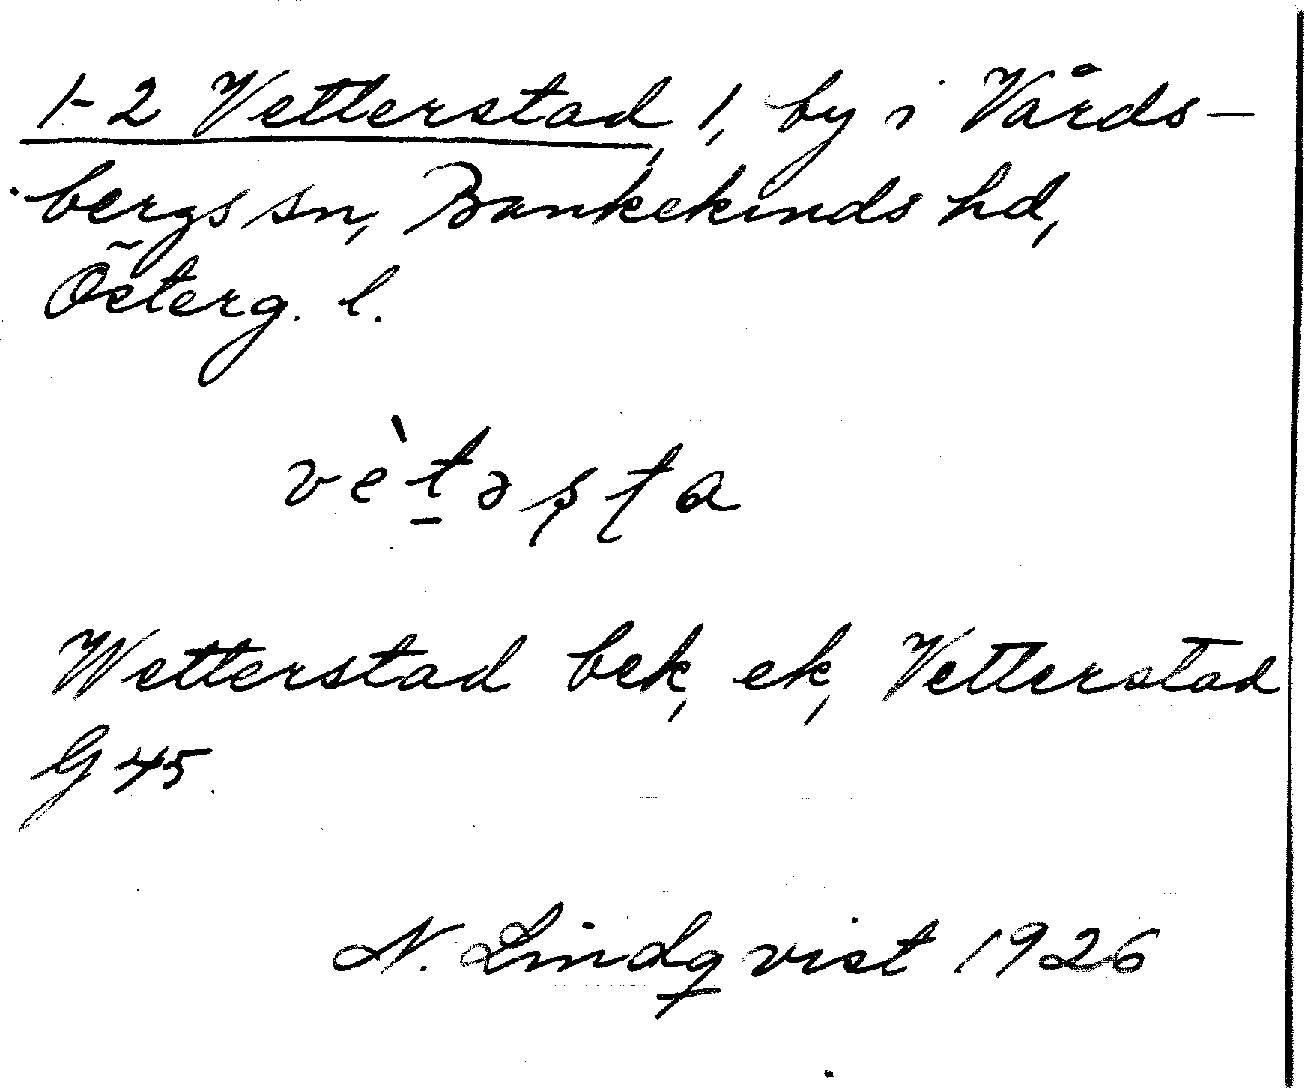 1-2 Vetterstad, 1, by i Vårds-
bergs sn, Bankekinds hd,
Österg. l.
vè̀t̠əʂʈa
Wetterstad bek, ek, Vetterstad
G 45.
N. Lindqvist 1926